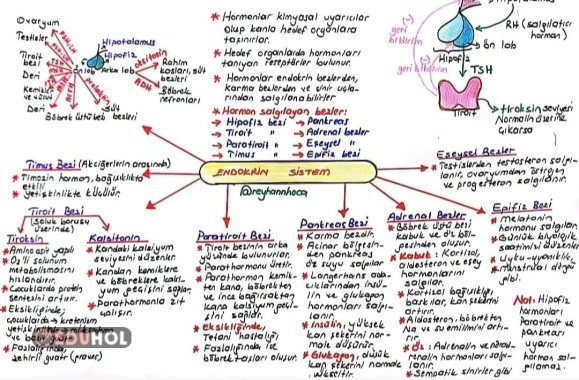 Ovaryum
Testisler
Tiroit
bezi
Deri
Kemikler
Deri
Böbrek üstü bezi
Hipotalamus
Hipofiz
Ön lob
Arka lob
oksitosin
ADH
Rahim
kasları, süt
bezleri
Böbrek
nefronları
Süt
bezleri
* Hormonlar kimyasal uyarıcılar
olup kanla hedef organlara
taşınırlar.
* Hedef organlarda hormonları
tanıyan reseptörler bulunur.
* Hormonlar endokrin bezlerden,
karma bezlerden ve sinir uçla-
rından salgılanabilirler
* Hormon salgılayan bezler:
→ Hipofiz bezi → Pankreas
→ Tiroit → Adrenal bezler
→ Paratiroit → Eşeysel
→ Timus → Epifiz bezi
(-)
geri
bildirim
(-)
geri bildirim
Hipofiz
ön lob
RH (salgılatıcı
hormon)
TSH
Tiroit
tiroksin seviyesi
Normalin üzerine
çıkarsa
ENDOKRİN SİSTEM
@reyhannhoca
Timus Bezi (Akciğerlerin arasında)
* Timozin hormonu, bağışıklıkta
etkili
* Yetişkinlikte küçülür.
Tiroit Bezi
(Soluk borusu
üzerinde)
Tiroksin
* Aminoasit yapılı
* O₂'li solunum
metabolizmasını
hızlandırır.
* Çocuklarda protein
sentezini artırır.
* Eksikliğinde;
çocuklarda → kretenizm
* Fazlalığında,
zehirli guatr
Kalsitonin
* Kandaki kalsiyum
seviyesini düzenler.
* Kandan kemiklere
ve böbreklere kalsi-
yum geçişini sağlar
* Parathormonla zıt
çalışır.
Paratiroit Bezi
* Tiroit bezinin arka
yüzünde bulunurlar.
* Parathormonu üretir.
* Parathormon kemik-
ten kana, böbrekten
ve ince bağırsaktan
kana kalsiyum geçi-
şini sağlar.
* Eksikliğinde,
Tetani hastalığı
* Fazlalığında ise
böbrek taşları oluşur.
Pankreas Bezi
* Karma bezdir.
* Acinar bölgesin-
den pankreas
öz suyu salgılar.
* Langerhans ada-
cıklarından insülin
ve glukagon
hormonları salgı-
lanır.
* İnsülin, yüksek
kan şekerini nor-
male düşürür.
* Glukagon, düşük
kan şekerini normale
yükseltir.
Adrenal Bezler
* Böbrek üstü bezi
kabuk ve öz böl-
gesinden oluşur.
* Kabuk: Kortizol,
aldosteron ve eşey
hormonlarını
salgılar.
* Kortizol bağışıklığı
baskılar, kan şekerini
artırır.
* Aldosteron, böbrekten
Na ve su emilimini artı-
rır.
* Öz: Adrenalin ve nöradr-
enalin hormonları salgı-
lanır.
* Sempatik sinirler gibi
Eşeysel Bezler
* Testislerden testosteron salgı-
lanır, ovaryumdan östrojen
ve progesteron salgılanır.
Epifiz Bezi
* Melatonin
hormonu salgılar.
* Günlük biyolojik
saatimizi düzenler.
* Uyku-uyanıklık,
menstrual döngü
gibi.
Not: Hipofiz
hormonları
Paratiroit ve
pankreas
uyarıcı
hormon sal-
gılamaz.
EDUHOL